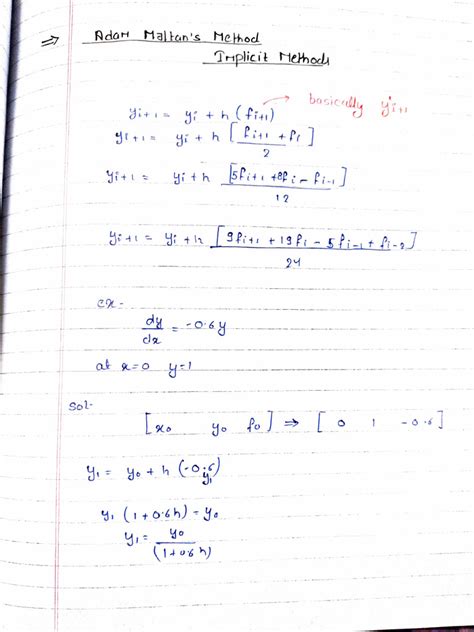 ⇒ Adam Maltan's Method
Implicit Methods
yi+1 = yi + h (fi+1) → basically y'i+1
yi+1 = yi + h [fi+1 + fi]/2
yi+1 = yi + h [5fi+1 + 8fi - fi-1]/12
yi+1 = yi + h [9fi+1 + 19fi - 5fi-1 + fi-2]/24
ex-
dy/dx = -0.6y
at x=0 y=1
Sol-
[x0 y0 f0] ⇒ [0 1 -0.6]
y1 = y0 + h (-0.6 y1)
y1 (1+0.6h) = y0
y1 = y0/(1+0.6h)